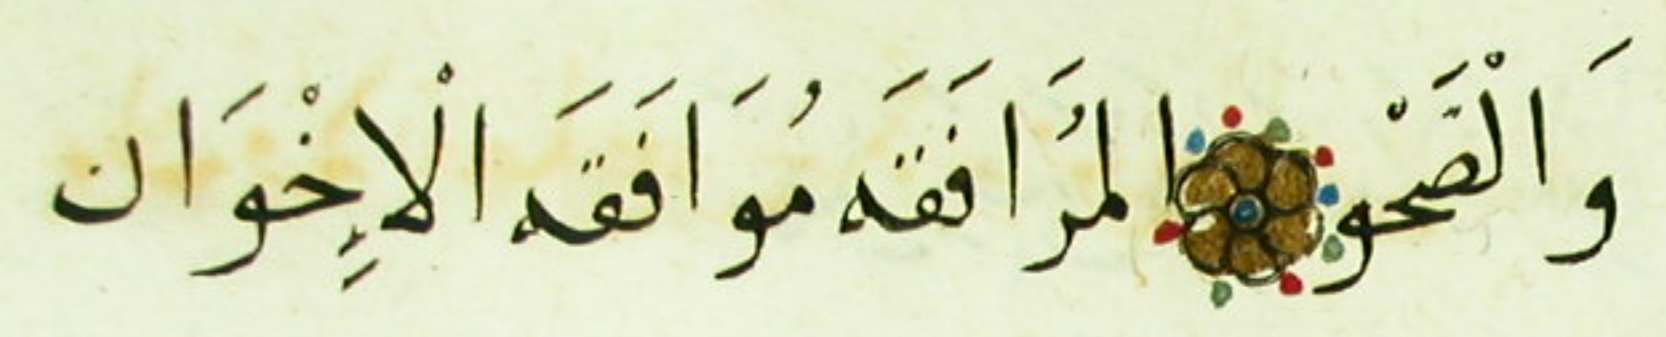 وَالْصَّحْو المُرَافَقَه مُوَافَقَه الْاِخْوَان